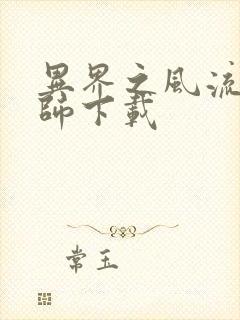 異界之風流
師下載
常玉